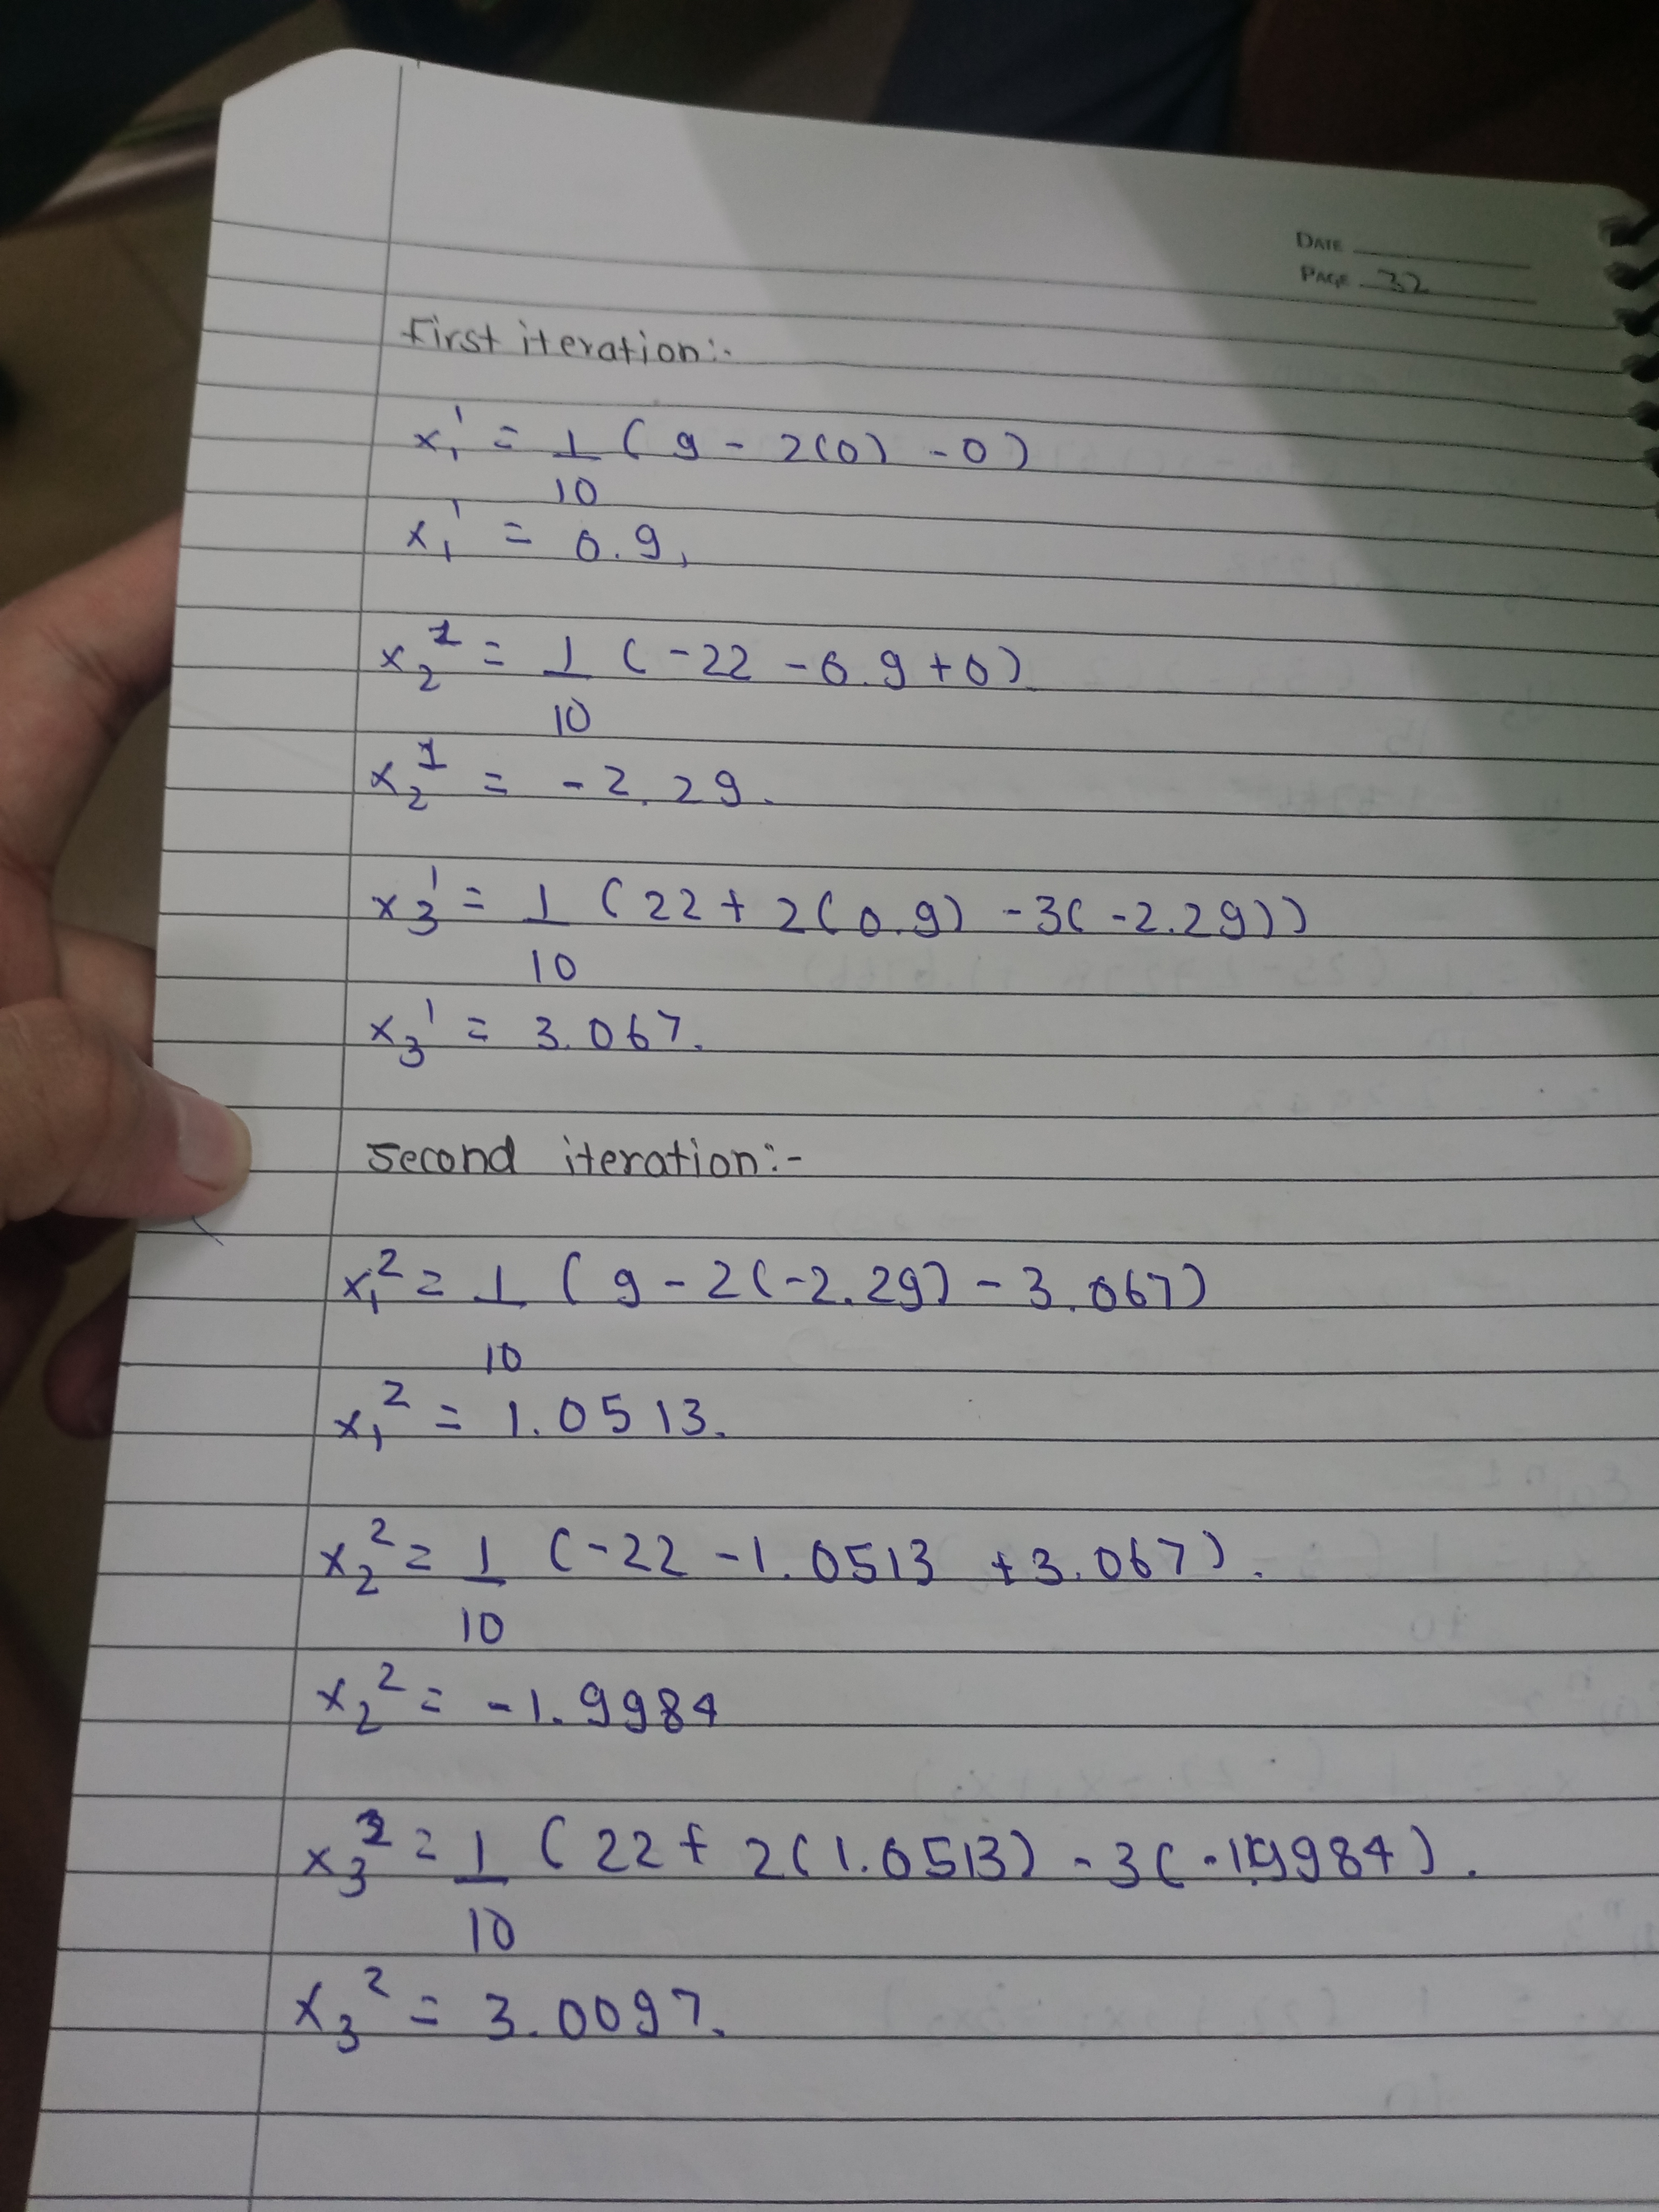 DATE
PAGE 32
First iteration:-
x₁¹ = 1/10 (9 - 2(0) - 0)
x₁¹ = 0.9,
x₂¹ = 1/10 (-22 - 0.9 + 0)
x₂¹ = -2.29.
x₃¹ = 1/10 (22 + 2(0.9) - 3(-2.29))
x₃¹ = 3.067.
Second iteration:-
x₁² = 1/10 (9 - 2(-2.29) - 3.067)
x₁² = 1.0513.
x₂² = 1/10 (-22 - 1.0513 + 3.067).
x₂² = -1.9984
x₃² = 1/10 (22 + 2(1.0513) - 3(-1.9984).
x₃² = 3.0097.